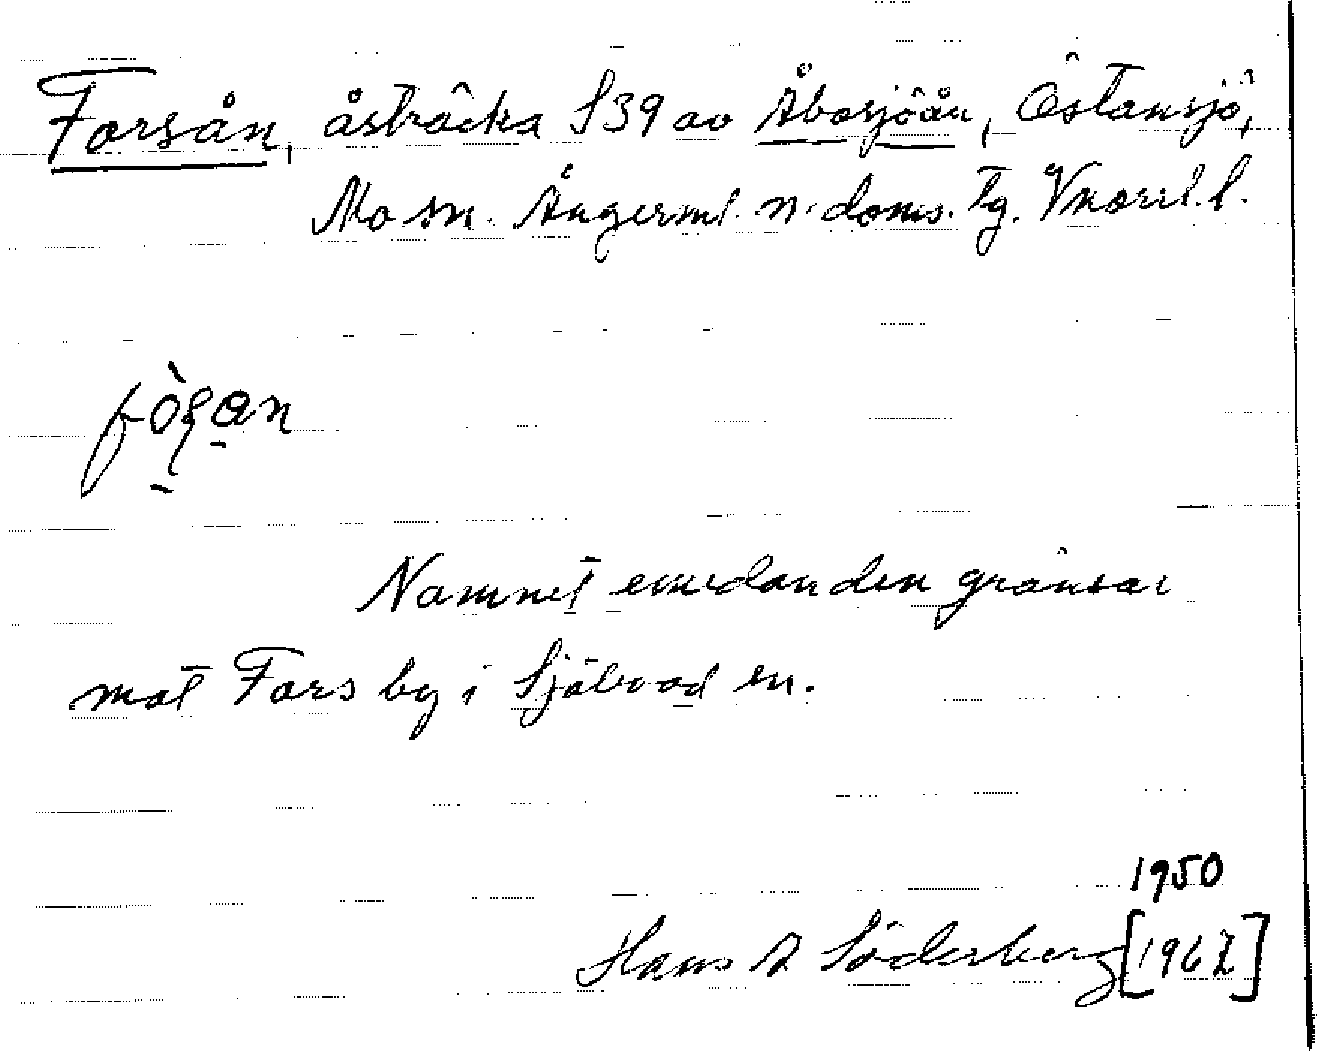 Forsån, åsträcka S39 av Åbosjöån, Östansjö,
Mo sn. Ångerml. n. doms. tg. Vnorrl. l.
Namnet emedan den gränsar
mot Fors by i Själevad sn.
1950
Hans A Söderberg [1962]